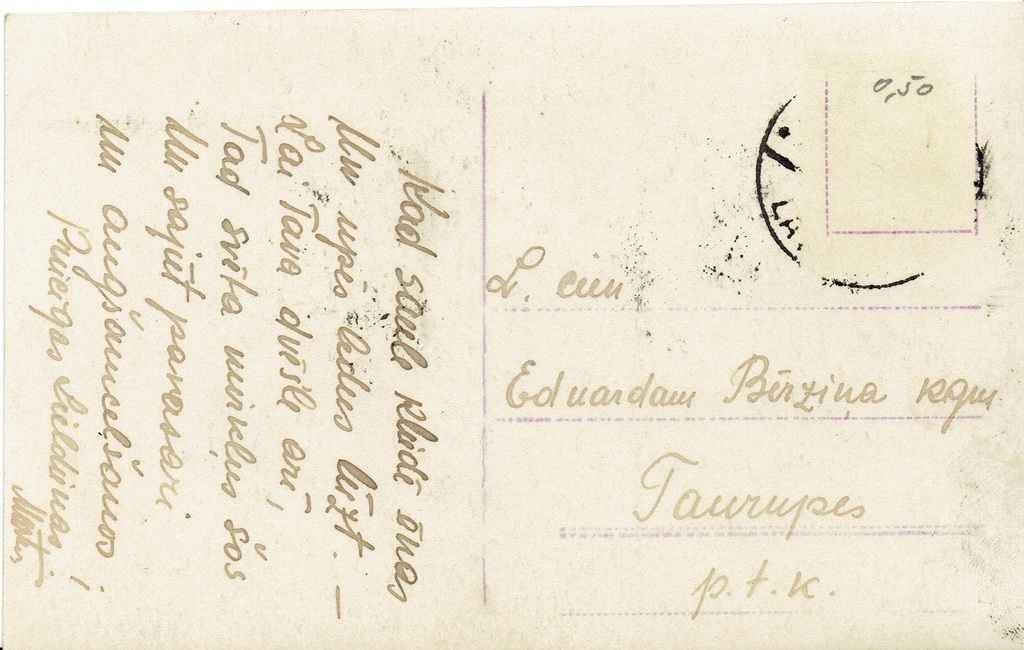 Kad saule kliedē ēnas
Un upēs ledus lūzt. —
Lai Tava dvēsle arī,
Tad svēta mirkļus šos
Un sajūt pavasari
Un augšāmcelšanos!
Priecīgas Lieldienas!
0,50
L. cien
Eduardam Bērziņa kgm
Taurupes
p. t. k.